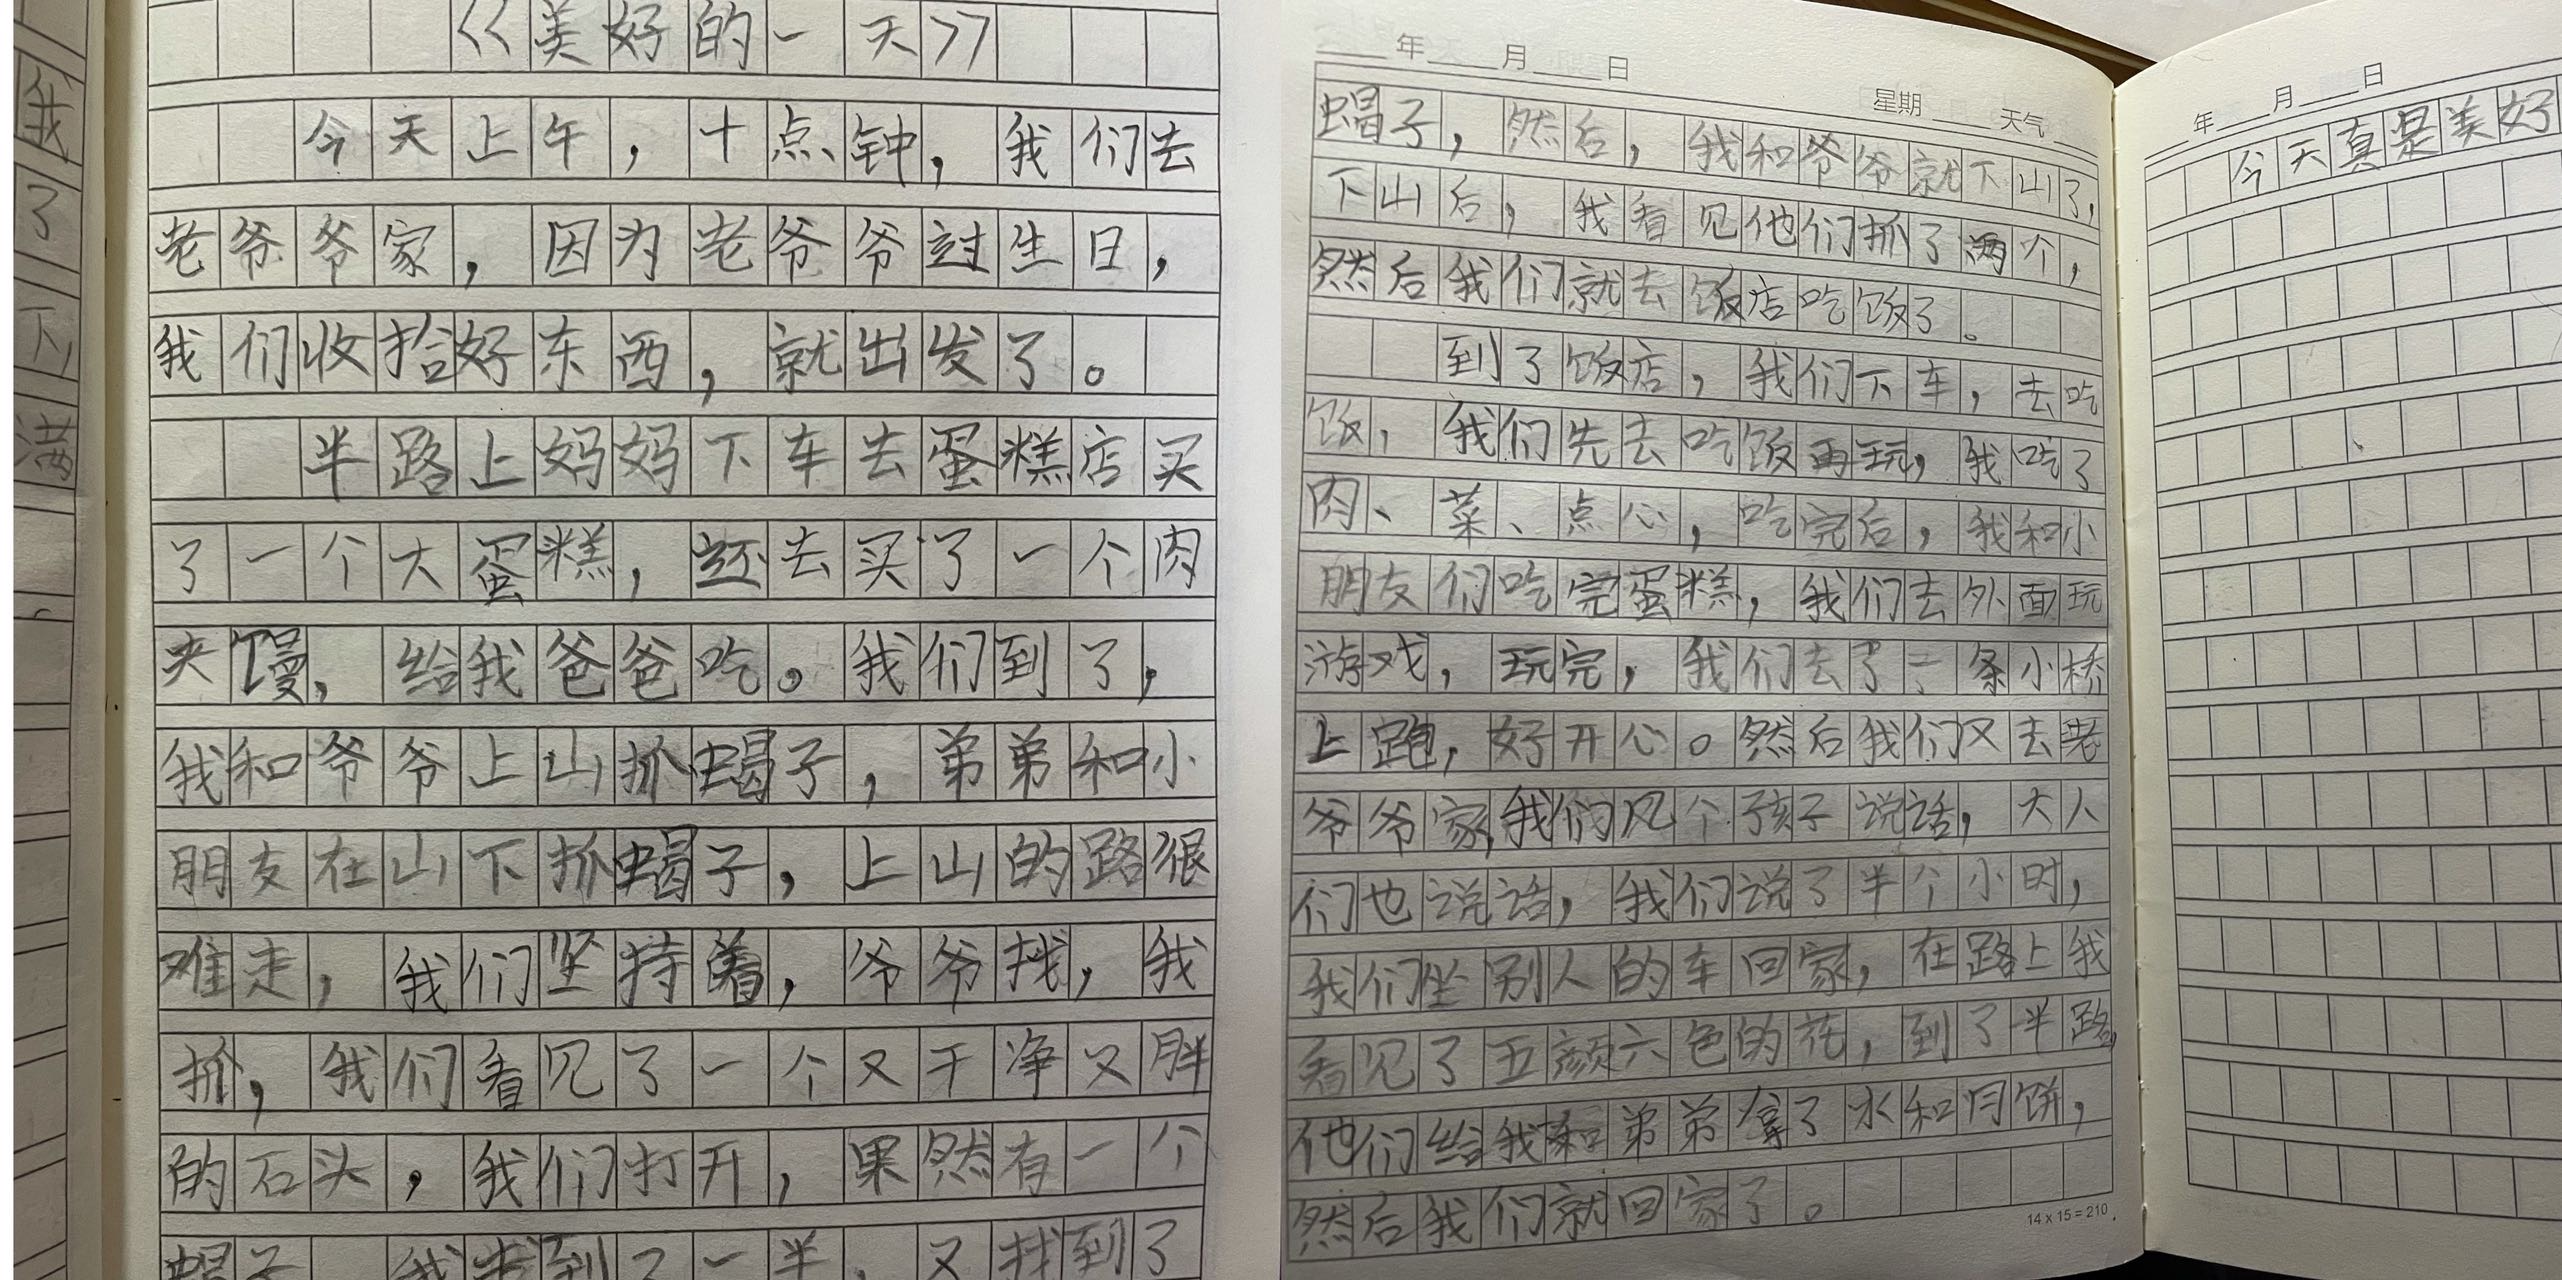 我
了
下
满
<<美好的一天>>
今天上午，十点钟，我们去
老爷爷家，因为老爷爷过生日，
我们收拾好东西，就出发了。
半路上妈妈下车去蛋糕店买
了一个大蛋糕，还去买了一个肉
夹馍，给我爸爸吃。我们到了，
我和爷爷上山抓蝎子，弟弟和小
朋友在山下抓蝎子，上山的路很
难走，我们坚持着，爷爷找，我
抓，我们看见了一个又干净又胖
的石头，我们打开，果然有一个
蝎子 我走到了一半，又找到了
年 月 日
星期 天气
蝎子，然后，我和爷爷就下山了，
下山后，我看见他们抓了两个，
然后我们就去饭店吃饭了。
到了饭店，我们下车，去吃
饭，我们先去吃饭再玩，我吃了
肉、菜、点心，吃完后，我和小
朋友们吃完蛋糕，我们去外面玩
游戏，玩完，我们去了一条小桥
上跑，好开心。然后我们又去老
爷爷家，我们几个孩子说话，大人
们也说话，我们说了半个小时，
我们坐别人的车回家，在路上我
看见了五颜六色的花，到了半路，
他们给我和弟弟拿了水和月饼，
然后我们就回家了。
14×15=210
年 月 日
今天真是美好